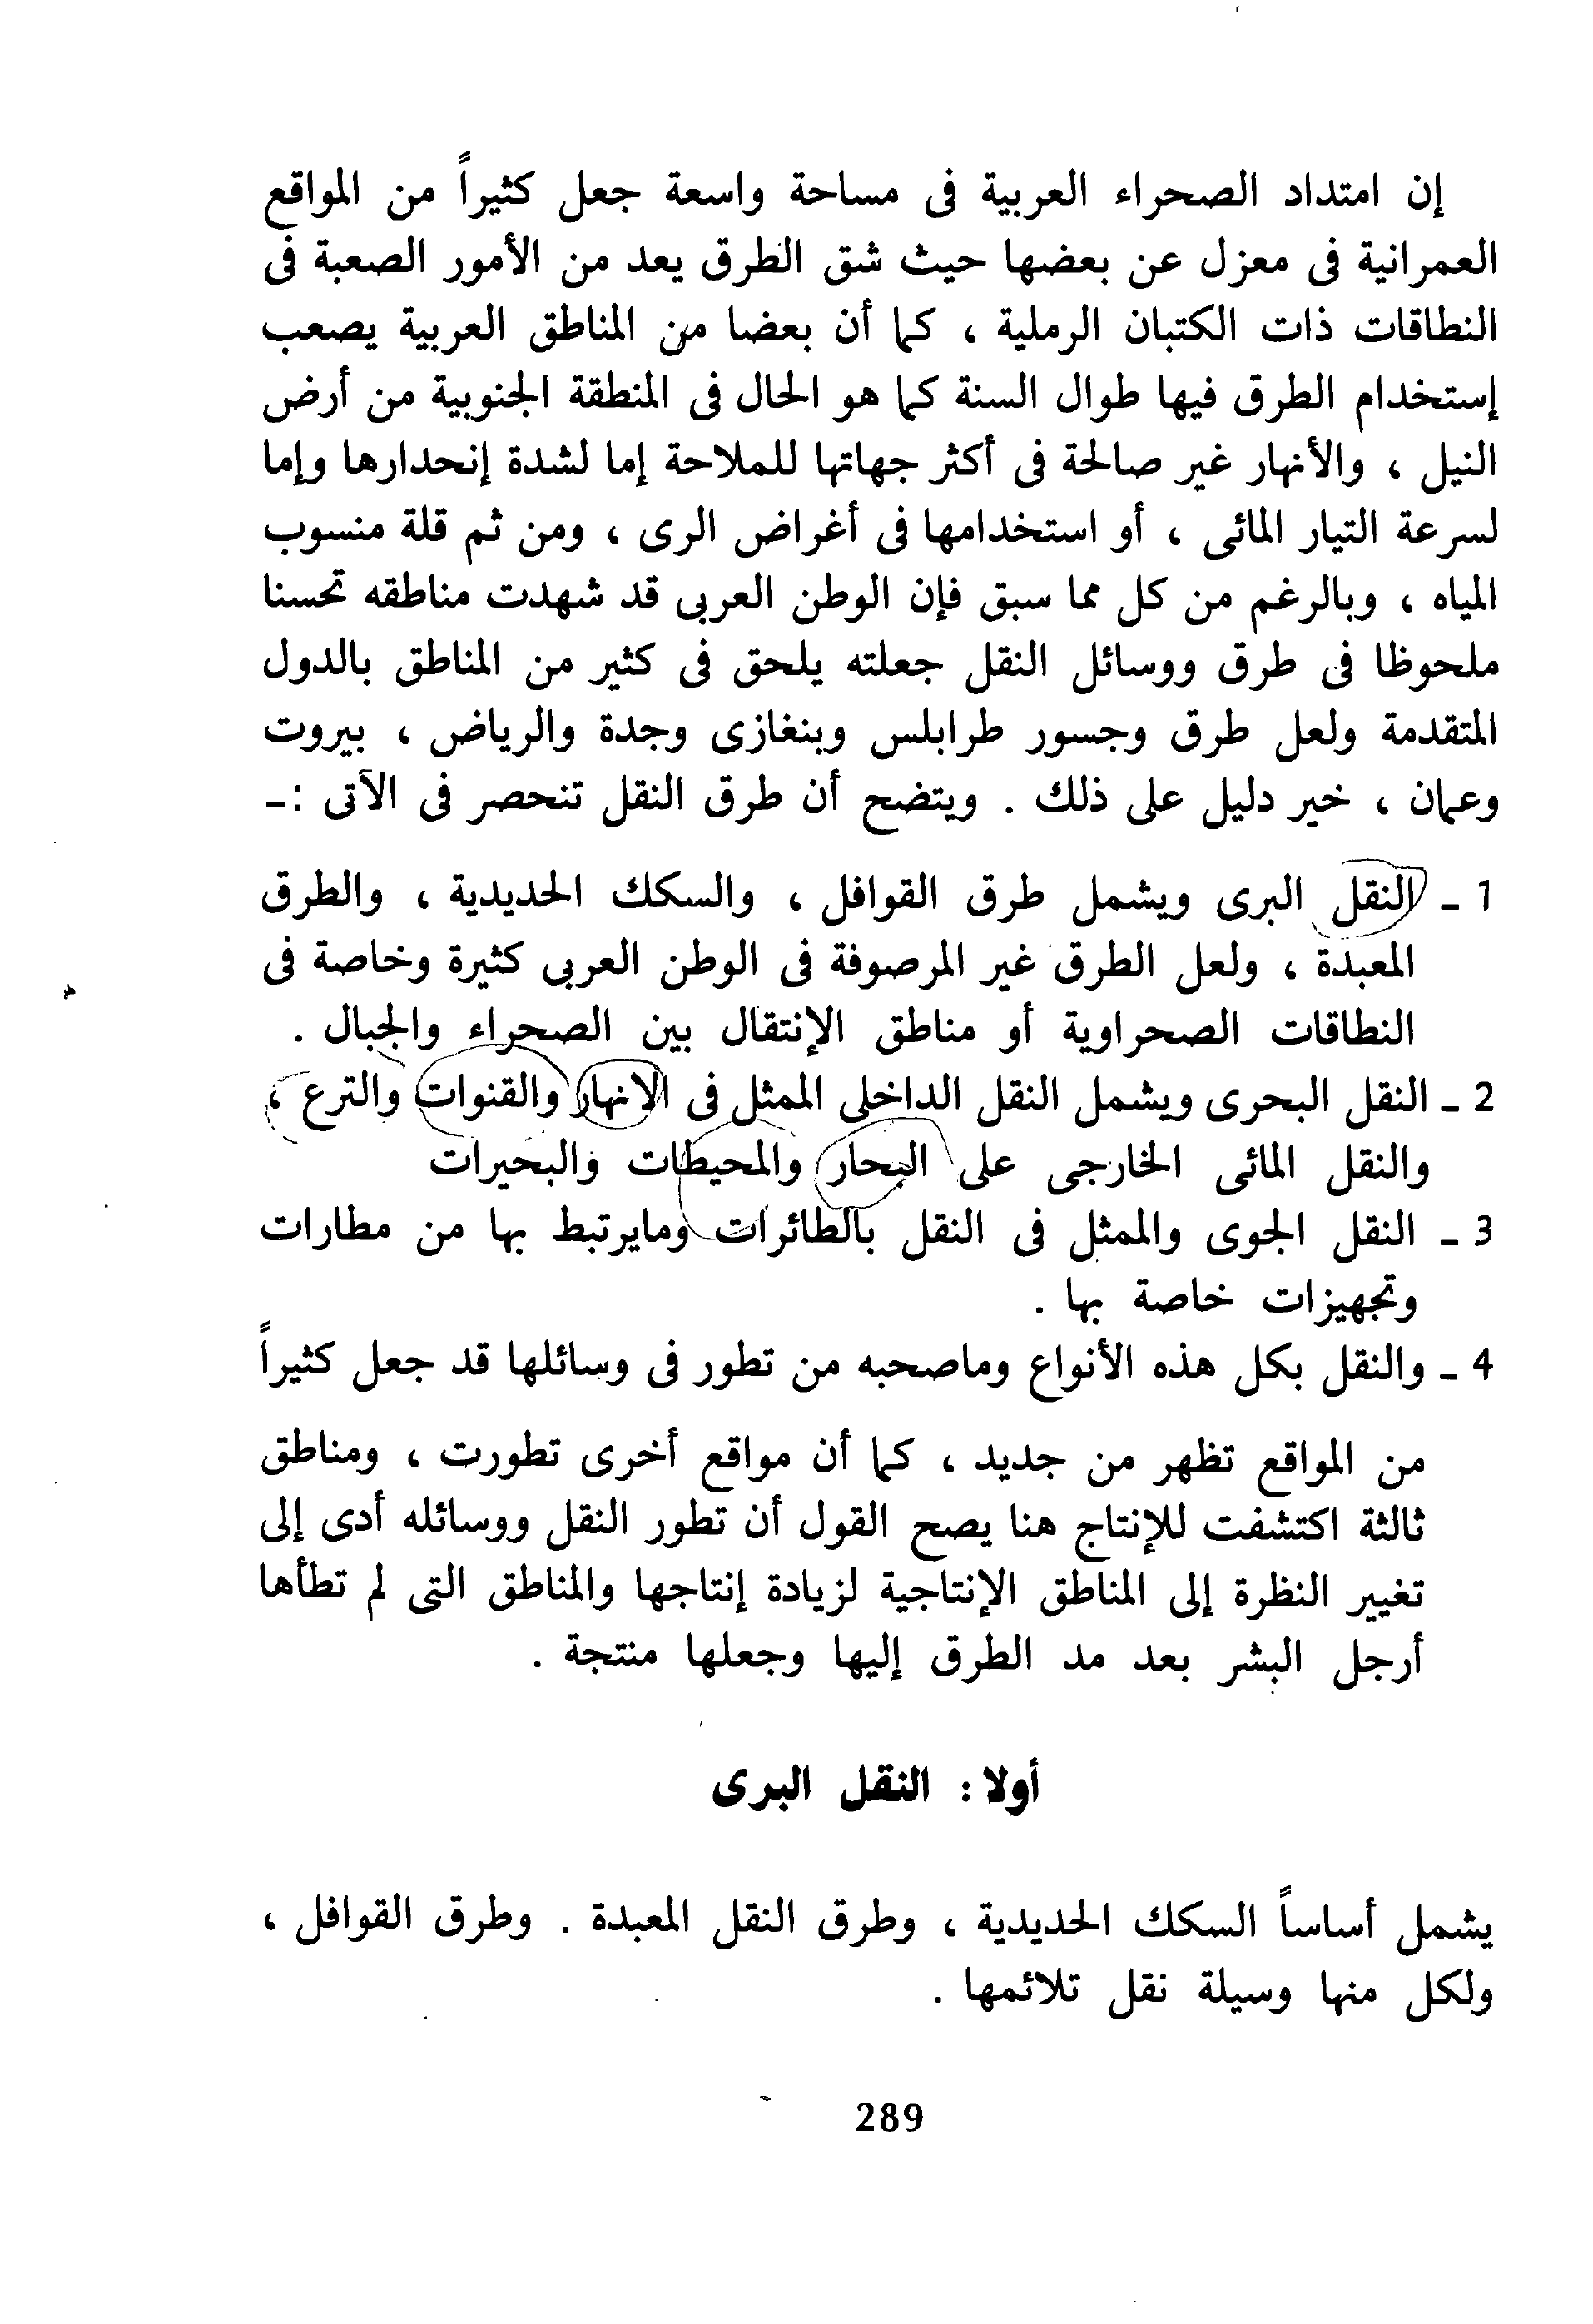 إن امتداد الصحراء العربية فى مساحة واسعة جعل كثيراً من المواقع
العمرانية فى معزل عن بعضها حيث شق الطرق يعد من الأمور الصعبة فى
النطاقات ذات الكتبان الرملية ، كما أن بعضا من المناطق العربية يصعب
إستخدام الطرق فيها طوال السنة كما هو الحال فى المنطقة الجنوبية من أرض
النيل ، والأنهار غير صالحة فى أكثر جهاتها للملاحة إما لشدة إنحدارها وإما
لسرعة التيار المائى ، أو استخدامها فى أغراض الرى ، ومن ثم قلة منسوب
المياه ، وبالرغم من كل مما سبق فإن الوطن العربى قد شهدت مناطقه تحسنا
ملحوظا فى طرق ووسائل النقل جعلته يلحق فى كثير من المناطق بالدول
المتقدمة ولعل طرق وجسور طرابلس وبنغازى وجدة والرياض ، بيروت
وعمان ، خير دليل على ذلك . ويتضح أن طرق النقل تنحصر فى الآتى :-
1 - النقل البرى ويشمل طرق القوافل ، والسكك الحديدية ، والطرق
المعبدة ، ولعل الطرق غير المرصوفة فى الوطن العربى كثيرة وخاصة فى
النطاقات الصحراوية أو مناطق الإنتقال بين الصحراء والجبال .
2 - النقل البحرى ويشمل النقل الداخلى الممثل فى الانهار والقنوات والترع ،
والنقل المائى الخارجى على البحار والمحيطات والبحيرات
3 - النقل الجوى والممثل فى النقل بالطائرات ومايرتبط بها من مطارات
وتجهيزات خاصة بها .
4 - والنقل بكل هذه الأنواع وماصحبه من تطور فى وسائلها قد جعل كثيراً
من المواقع تظهر من جديد ، كما أن مواقع أخرى تطورت ، ومناطق
ثالثة اكتشفت للإنتاج هنا يصح القول أن تطور النقل ووسائله أدى إلى
تغيير النظرة إلى المناطق الإنتاجية لزيادة إنتاجها والمناطق التى لم تطأها
أرجل البشر بعد مد الطرق إليها وجعلها منتجة .
أولا : النقل البرى
يشمل أساساً السكك الحديدية ، وطرق النقل المعبدة . وطرق القوافل ،
ولكل منها وسيلة نقل تلائمها .
289